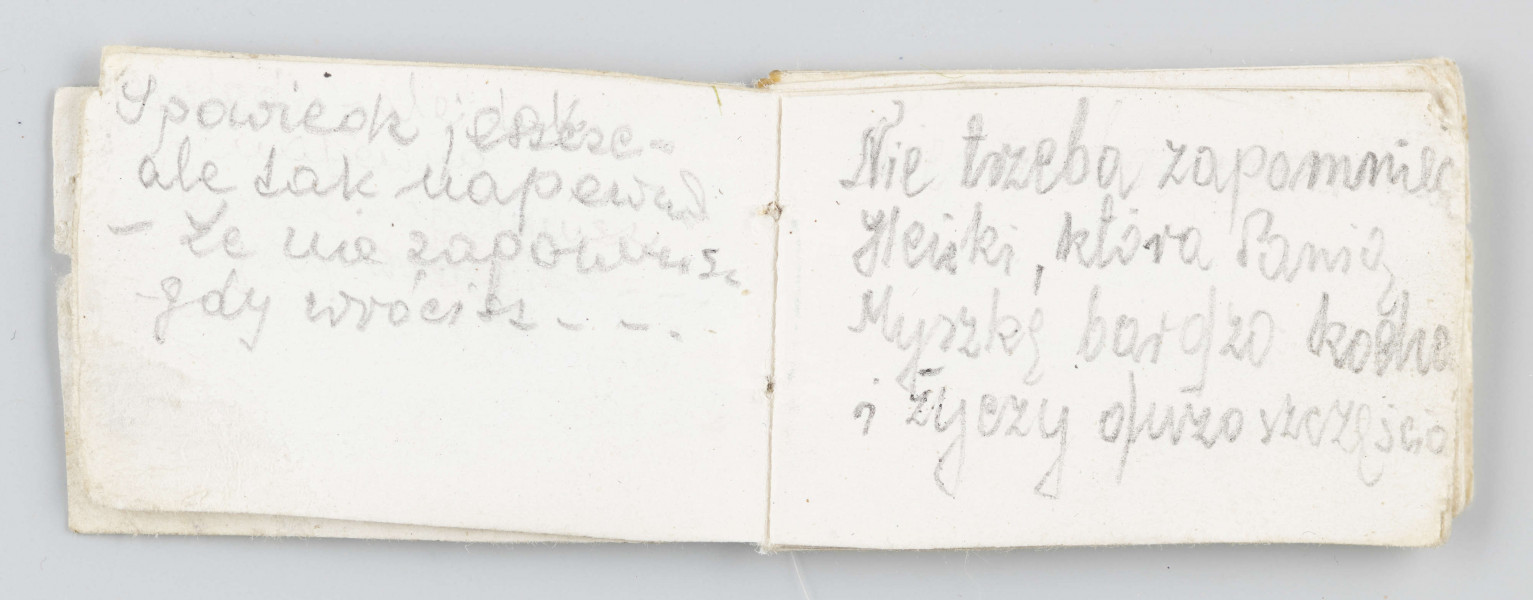 Spowiedź jeszcze -
ale tak napewno
- Że nie zapomnisz
gdy wrócisz - - -.
Nie trzeba zapomnieć
Heiski, która Panią
Myszkę bardzo kocha
i życzy dużo szczęścia